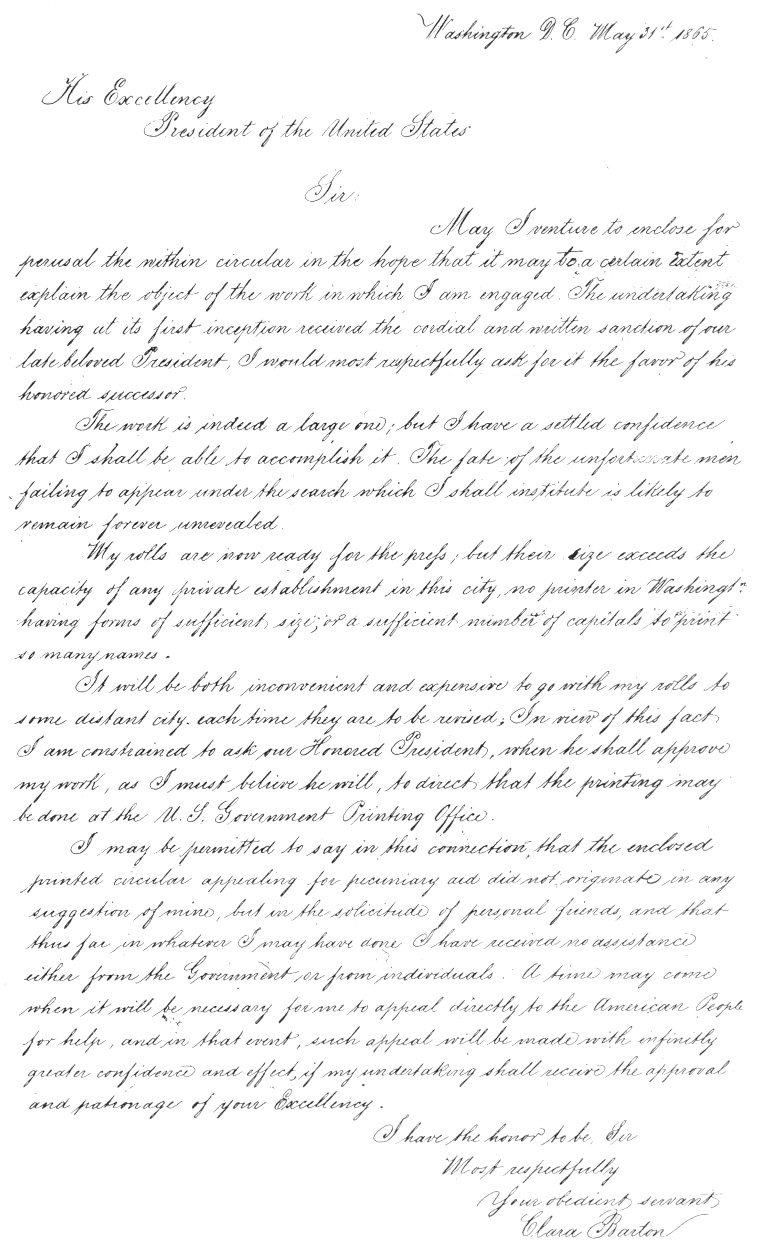 Washington D.C. May 31st. 1865.
His Excellency
President of the United States
Sir:
May I venture to enclose for
perusal the within circular in the hope that it may to a certain extent
explain the object of the work in which I am engaged. The undertaking
having at its first inception received the cordial and written sanction of our
late beloved President, I would most respectfully ask for it the favor of his
honored successor.
The work is indeed a large one; but I have a settled confidence
that I shall be able to accomplish it. The fate of the unfortunate men
failing to appear under the search which I shall institute is likely to
remain forever unrevealed.
My rolls are now ready for the press; but their size exceeds the
capacity of any private establishment in this city, no printer in Washingtn
having forms of sufficient size, or a sufficient number of capitals to print
so many names.
It will be both inconvenient and expensive to go with my rolls to
some distant city. each time they are to be revised; In view of this fact
I am constrained to ask our Honored President, when he shall approve
my work, as I must believe he will, to direct that the printing may
be done at the U.S. Government Printing Office.
I may be permitted to say in this connection, that the enclosed
printed circular appealing for pecuniary aid did not originate in any
suggestion of mine, but in the solicitude of personal friends, and that
thus far in whatever I may have done I have received no assistance
either from the Government or from individuals. A time may come
when it will be necessary for me to appeal directly to the American People
for help, and in that event, such appeal will be made with infinitly
greater confidence and effect, if my undertaking shall receive the approval
and patronage of your Excellency.
I have the honor to be, Sir
Most respectfully
Your obedient servant
Clara Barton